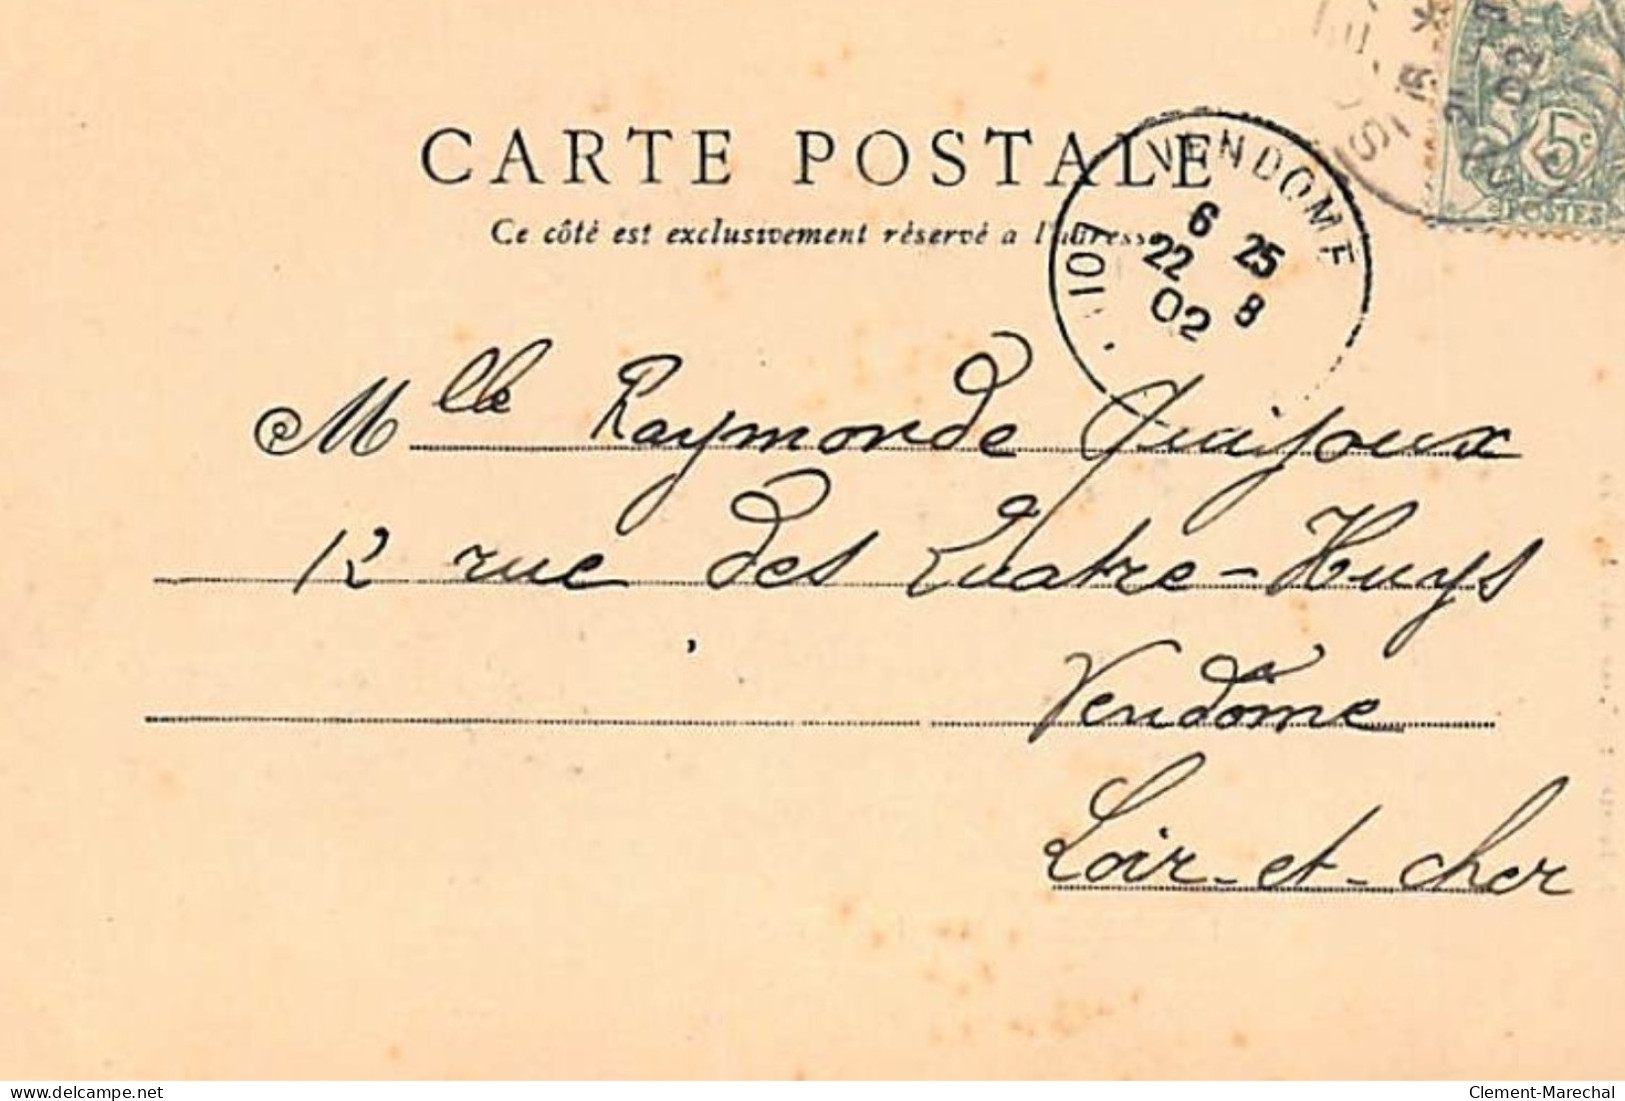 CARTE POSTALE
Ce côté est exclusivement réservé a l'adresse
VENDOME
6 25
22 8
02
5c
POSTES
Mlle Raymonde
12 rue des Quatre-Huys
Vendôme
Loir-et-cher
www.delcampe.net
Clement-Marechal